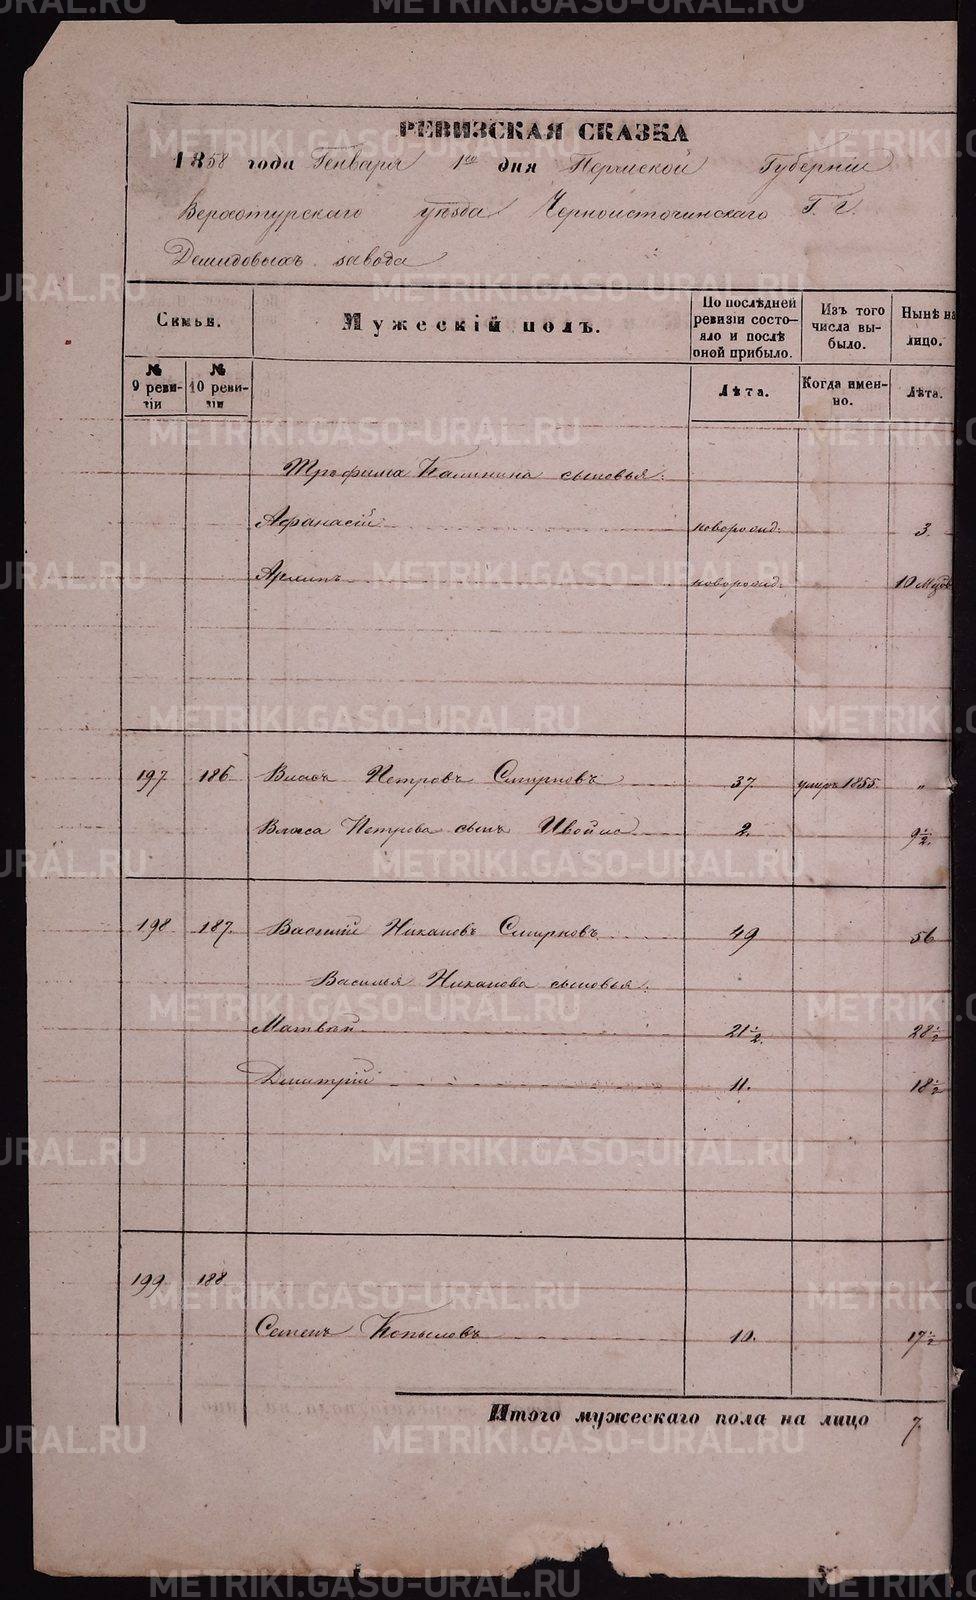 METRIKI.GASO-URAL.RU
РЕВИЗСКАЯ СКАЗКА
1858 года Генваря 1го дня Пермской Губерніи
Верхотурскаго уѣзда Черноисточинскаго Г. Г.
Демидовыхъ завода
Семьи.
Мужескій полъ.
По послѣдней ревизіи состо-
яло и послѣ оной прибыло.
Изъ того числа вы-
было.
Нынѣ на лицо.
№ 9 реви-
зіи
№ 10 реви-
зіи
Лѣта.
Когда имен-
но.
Лѣта.
Трофима Калинина сыновья:
Афанасій новорожд: 3.
Архипъ новорожд: 10 Мѣс
197 186 Власъ Петровъ Смирновъ 37. умеръ 1855. "
Власа Петрова сынъ 2. 9½.
198 187. Василій Никановъ Смирновъ 49 56
Василья Никанова сыновья:
Матвѣй 21½. 28½
Дмитрій 11. 18½
199 188
Семенъ Копыловъ 10. 17½
Итого мужескаго пола на лицо 7.